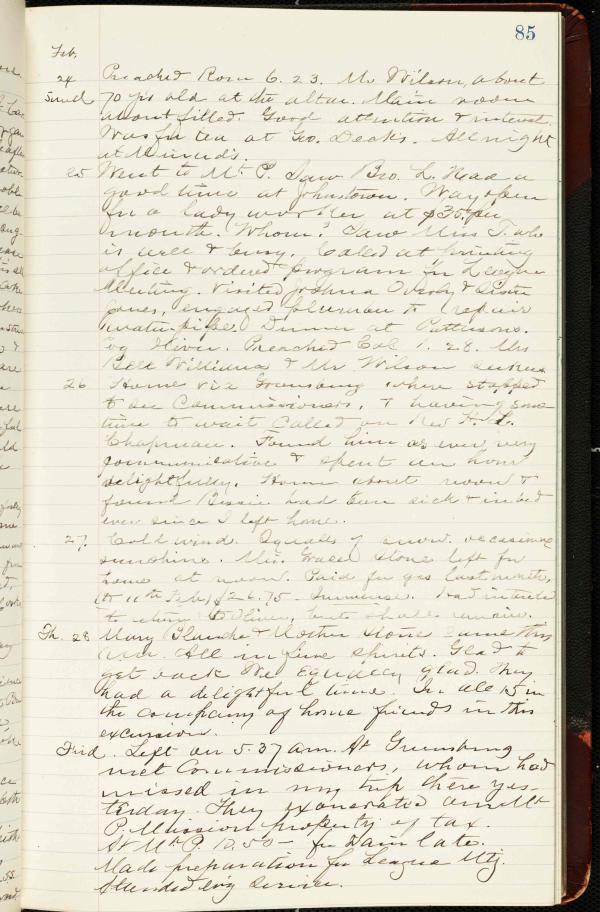 85
Feb.
24 Preached Rom 6. 23. Mr Wilson, about
Sund 70 yrs old at the altar. Main room
about filled. Good attention & interest.
Was for tea at Geo. Deck's. All night
at
25 Went to Mt. P. Saw Bro. L. Had a
good time at Johnstown. Way open
for a lady worker at $35 per
month. Whom? Saw Miss T. who
is well & busy. Called at printing
office & ordered program for League
Meeting. Visited Joshua & Sister
Jones, engaged plumber to repair
water pipe. Dinner at Pattersons.
Evg Oliver. Preached Col 1. 28. Mrs
Bell Williams & Mr Wilson seekers
26 Home via Greensburg where stopped
to see Commissioners, & having some
time to wait called on Rev H. L.
Chapman. Found him as ever very
communicative & spent an hour
delightfully. Home about noon &
found Bessie had been sick & in bed
ever since I left home.
27. Cold wind. Squalls of snow. occasional
sunshine. Mrs. Stone left for
home at noon. Paid for gas last month,
(to 11th Feb) $26.75. Immense. Had intended
to return to Oliver, but shall remain.
Th. 28 Mary Blanche & Mother Stone came this
All in fine spirits. Glad to
get back. We equally glad. They
had a delightful time. In all 15 in
the company of home friends in this
excursion.
Left on 5.37 am. At Greensburg
met Commissioners, whom had
missed in my trip there yes-
terday. They exonerated our Mt
P. Mission property of tax.
At Mt P. 12.50 - for train late.
Made preparation for League Mtg.
Attended evg service.